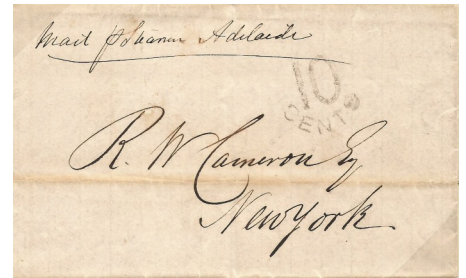 Mail p Steamer Adelaide
10
CENTS
R. W Cameron Esq
New York